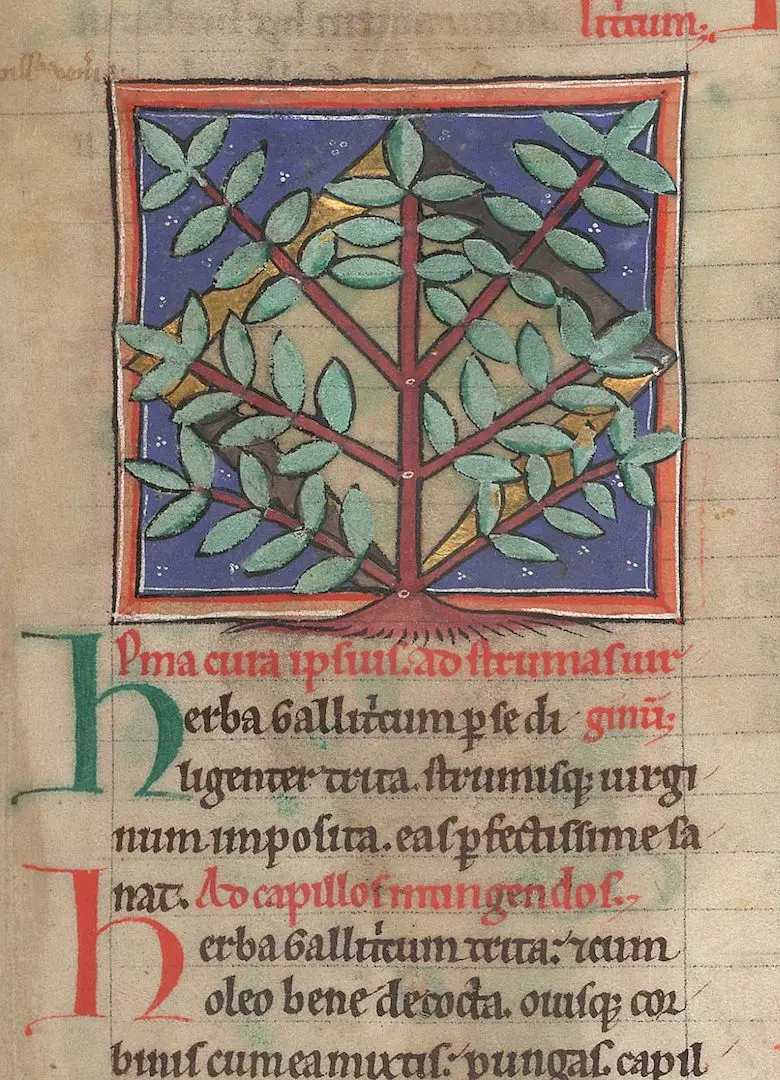 litⁱcum;
Pⁱma cura ipsius. Ad strumas uir
herba Gallitⁱcum ꝑ se di ginū;
ligenter trita. strumisq; uirgi
num imposita. eas ꝑfectissime sa
nat. Ad capillos inungendos.
herba Gallitⁱcum trita: ⁊ cum
oleo bene decocta. ouisq; cor
binis cum ea mixtis: pungas. capil